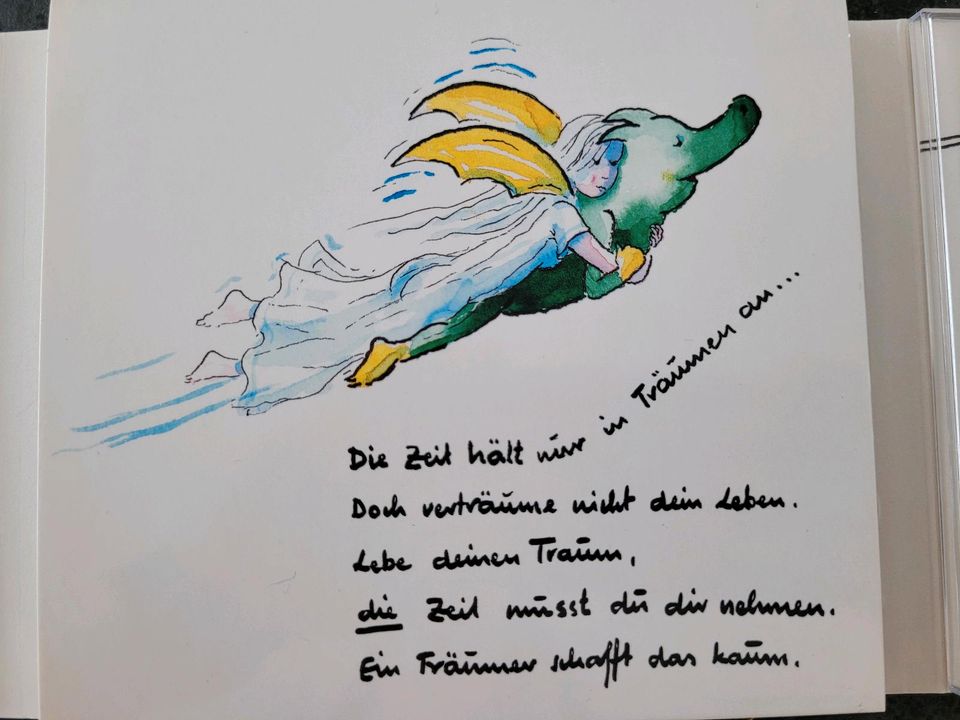 Die Zeit hält nur in Träumen an...
Doch verträume nicht dein Leben.
Lebe deinen Traum,
die Zeit musst du dir nehmen.
Ein Träumer schafft das kaum.